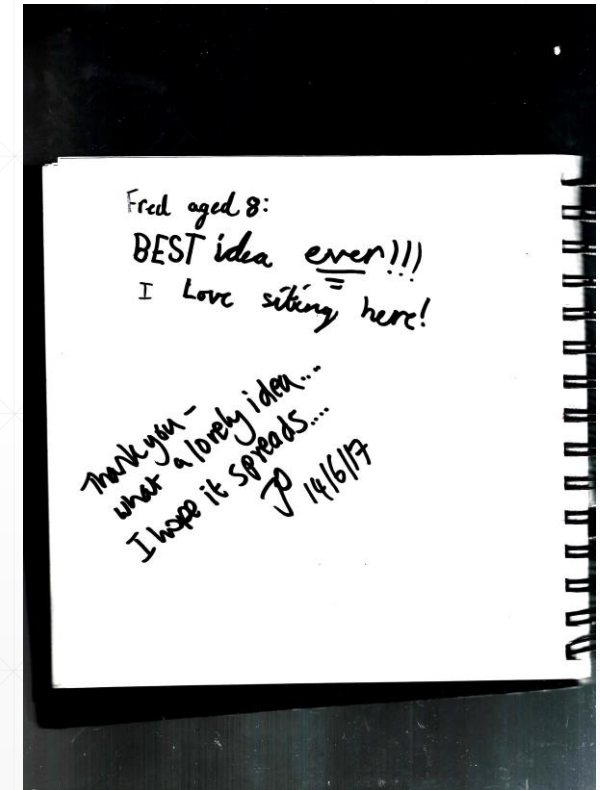 Fred aged 8:
BEST idea ever!!!
I Love siting here!
Thank you -
what a lovely idea...
I hope it spreads....
JP 14/6/17